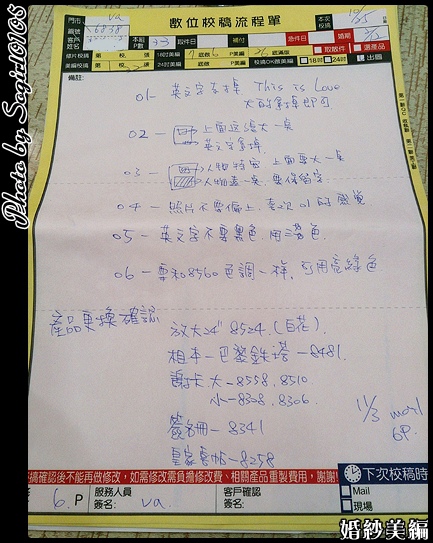 數位校稿流程單
門市 va
編號
客戶姓名
本組P數 33
取件日
補件日
本次校稿 10/25
婚期
急件
取散件
選產品
18吋
24吋
出圖
備註:
01- 英文字去掉 This is Love
大的拿掉即可
02- 上面這邊大一桌
英文字拿掉
03- 人物特寫 上面要大一桌
人物
04- 照片不要偏上, 01的感覺
05- 英文字不要黑色, 用
06- 要和8560色調一樣, 可用亮綠色
產品更換確認
放大24" 8524.(白花)
相本-巴黎鐵塔-8481.
謝卡大-8558.8510.
小-8308.8306.
簽名冊-8341
皇家喜帖-8258
11/3 mail
6P.
搞確認後不能再做修改,如需修改需負擔修改費、相關產品重製費用,謝謝!
6. P
服務人員簽名: va.
客戶確認簽名:
下次校稿時
Mail
現場
Photo by Sogirl0168
婚紗美編